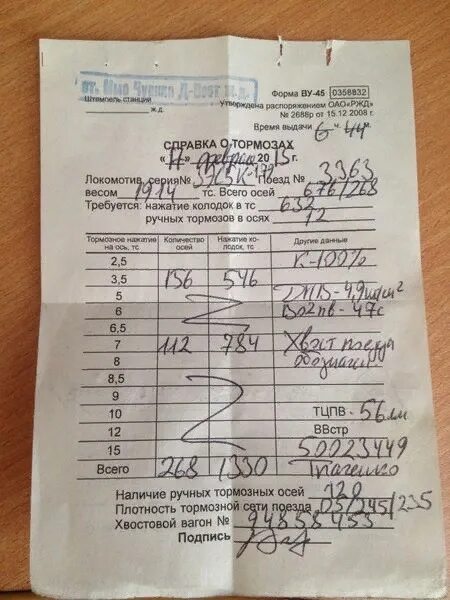 ст. Имо Чурка Д-Вост ж.д.
Форма ВУ-45 0358832
Штемпель станции ж.д.
Утверждена распоряжением ОАО«РЖД»
№ 2688р от 15.12 2008 г.
Время выдачи 6 ч. 44 м.
СПРАВКА О ТОРМОЗАХ
"17" февраля 2015 г.
Локомотив серия№ 3ЭС5К-179 Поезд № 3363
весом 1914 тс. Всего осей 676/268
Требуется: нажатие колодок в тс 632
ручных тормозов в осях 12
Тормозное нажатие на ось, тс Количество осей Нажатие колодок, тс Другие данные
2,5 К-100%
3,5 156 546
5 ДПВ-4,9
6 Во2пв-47с
6,5
7 112 784 Хвост поезда
8 обозначен.
8,5
9
10 ТЦПВ - 56мм
12 ВВстр
15 50023449
Всего 268 1330 Ткаченко
Наличие ручных тормозных осей 120
Плотность тормозной сети поезда 125/245/235
Хвостовой вагон № 94858453
Подпись